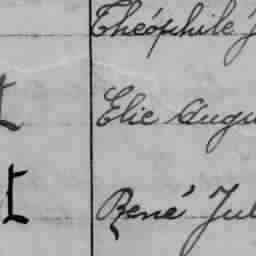 Théophile J
Elie Augu
René Jul